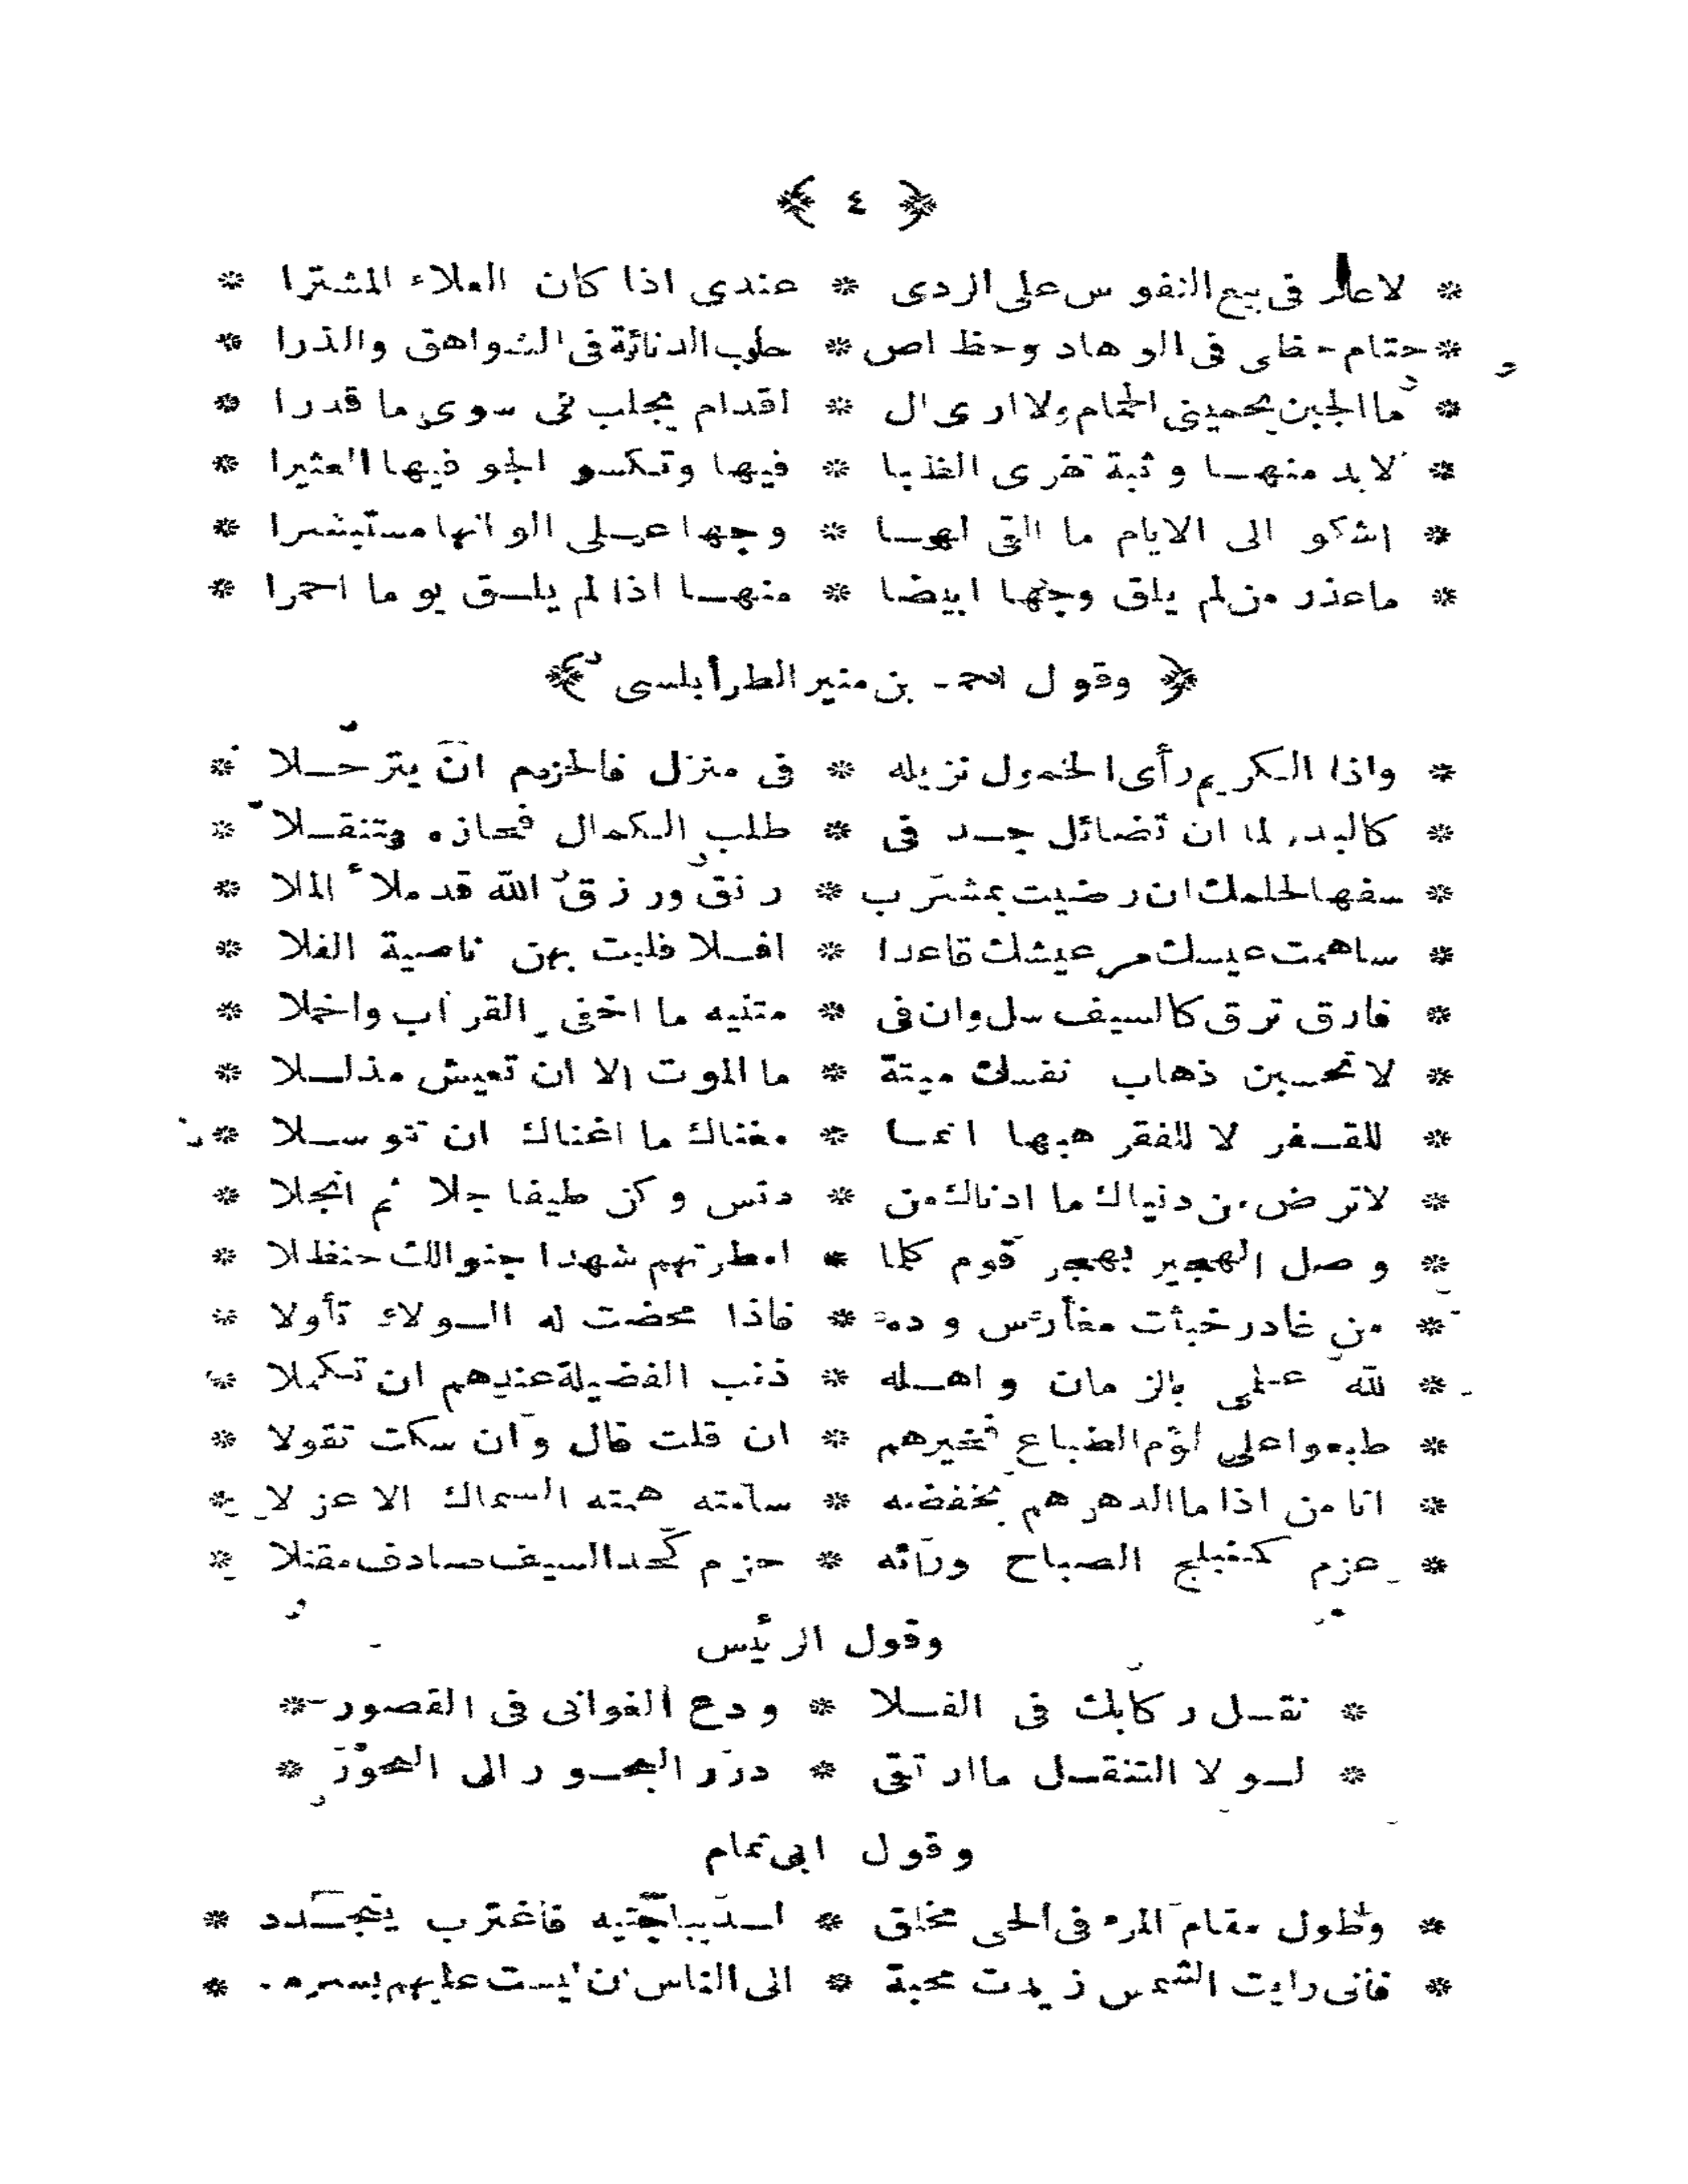 ﴿ ٤ ﴾
* لا عار فى بيع النفوس على الردى * عندى اذا كان العلاء المشترا *
* حتام حظى فى الوهاد وحظ اص * حاب الدنائة فى الشواهق والذرا *
* ما الجبن يحمينى الحمام ولا ارى ال * اقدام يجلب لى سوى ما قدرا *
* لابد منها وثبة تغرى الظبا * فيها وتكسو الجو فيها العثيرا *
* اشكو الى الايام ما القى لهــا * وجها عــلى الوانها مستبشرا *
* ما عذر من لم يلق وجها ابيضا * منهــا اذا لم يلــق يوما احمرا *
﴿ وقول احمد بن منير الطرابلسى ﴾
* واذا الكريم رأى الخمول نزيله * فى منزل فالحزم ان يترحــلا *
* كالبدر لما ان تضائل جــد فى * طلب الكمال فحازه وتنقــلا *
* سفها لحلمك ان رضيت بمشرب * رنق ورزق الله قد ملأ الملا *
* ساهمت عيسك مر عيشك قاعدا * افــلا فليت بهن ناصية الفلا *
* فارق ترق كالسيف سل وان فى * متنيه ما اخفى القراب واخملا *
* لا تحسبن ذهاب نفسك ميتة * ما الموت الا ان تعيش مذلــلا *
* للقــفر لا للفقر هبها انمــا * مغناك ما اغناك ان تتوســلا *
* لا ترض من دنياك ما ادناك من * دنس وكن طيفا جلا ثم انجلا *
* وصل الهجير بهجر قوم كلما * امطرتهم شهدا جنوا لك حنظلا *
* من غادر خبأت مغارس وده * فاذا محضت له الــولاء تأولا *
* لله علمى بالزمان واهــله * ذنب الفضيلة عندهم ان تكملا *
* طبعوا على لؤم الطباع فخيرهم * ان قلت قال وان سكت تقولا *
* انا من اذا ما الدهر هم بخفضه * سامته همته السماك الاعزلا *
* عزم كمنبلج الصباح ورائه * حزم كحد السيف صادف مقتلا *
وقول الرئيس
* نقــل ركابك فى الفــلا * ودع الغوانى فى القصور *
* لــولا التنقــل ما ارتقى * درر البحــور الى النحور *
وقول ابى تمام
* وطول مقام المرء فى الحى مخلق * لــديباجتيه فاغترب يتجــدد *
* فانى رايت الشمس زيدت محبة * الى الناس ان ليست عليهم بسرمد *